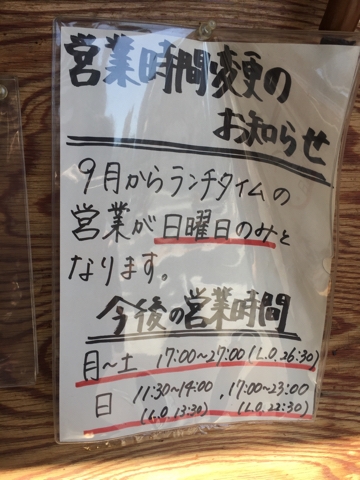 営業時間変更の
お知らせ
9月からランチタイムの
営業が日曜日のみと
なります。
今後の営業時間
月～土 17:00～27:00(L.O.26:30)
日 11:30～14:00 , 17:00～23:00
(L.O 13:30) (L.O.22:30)